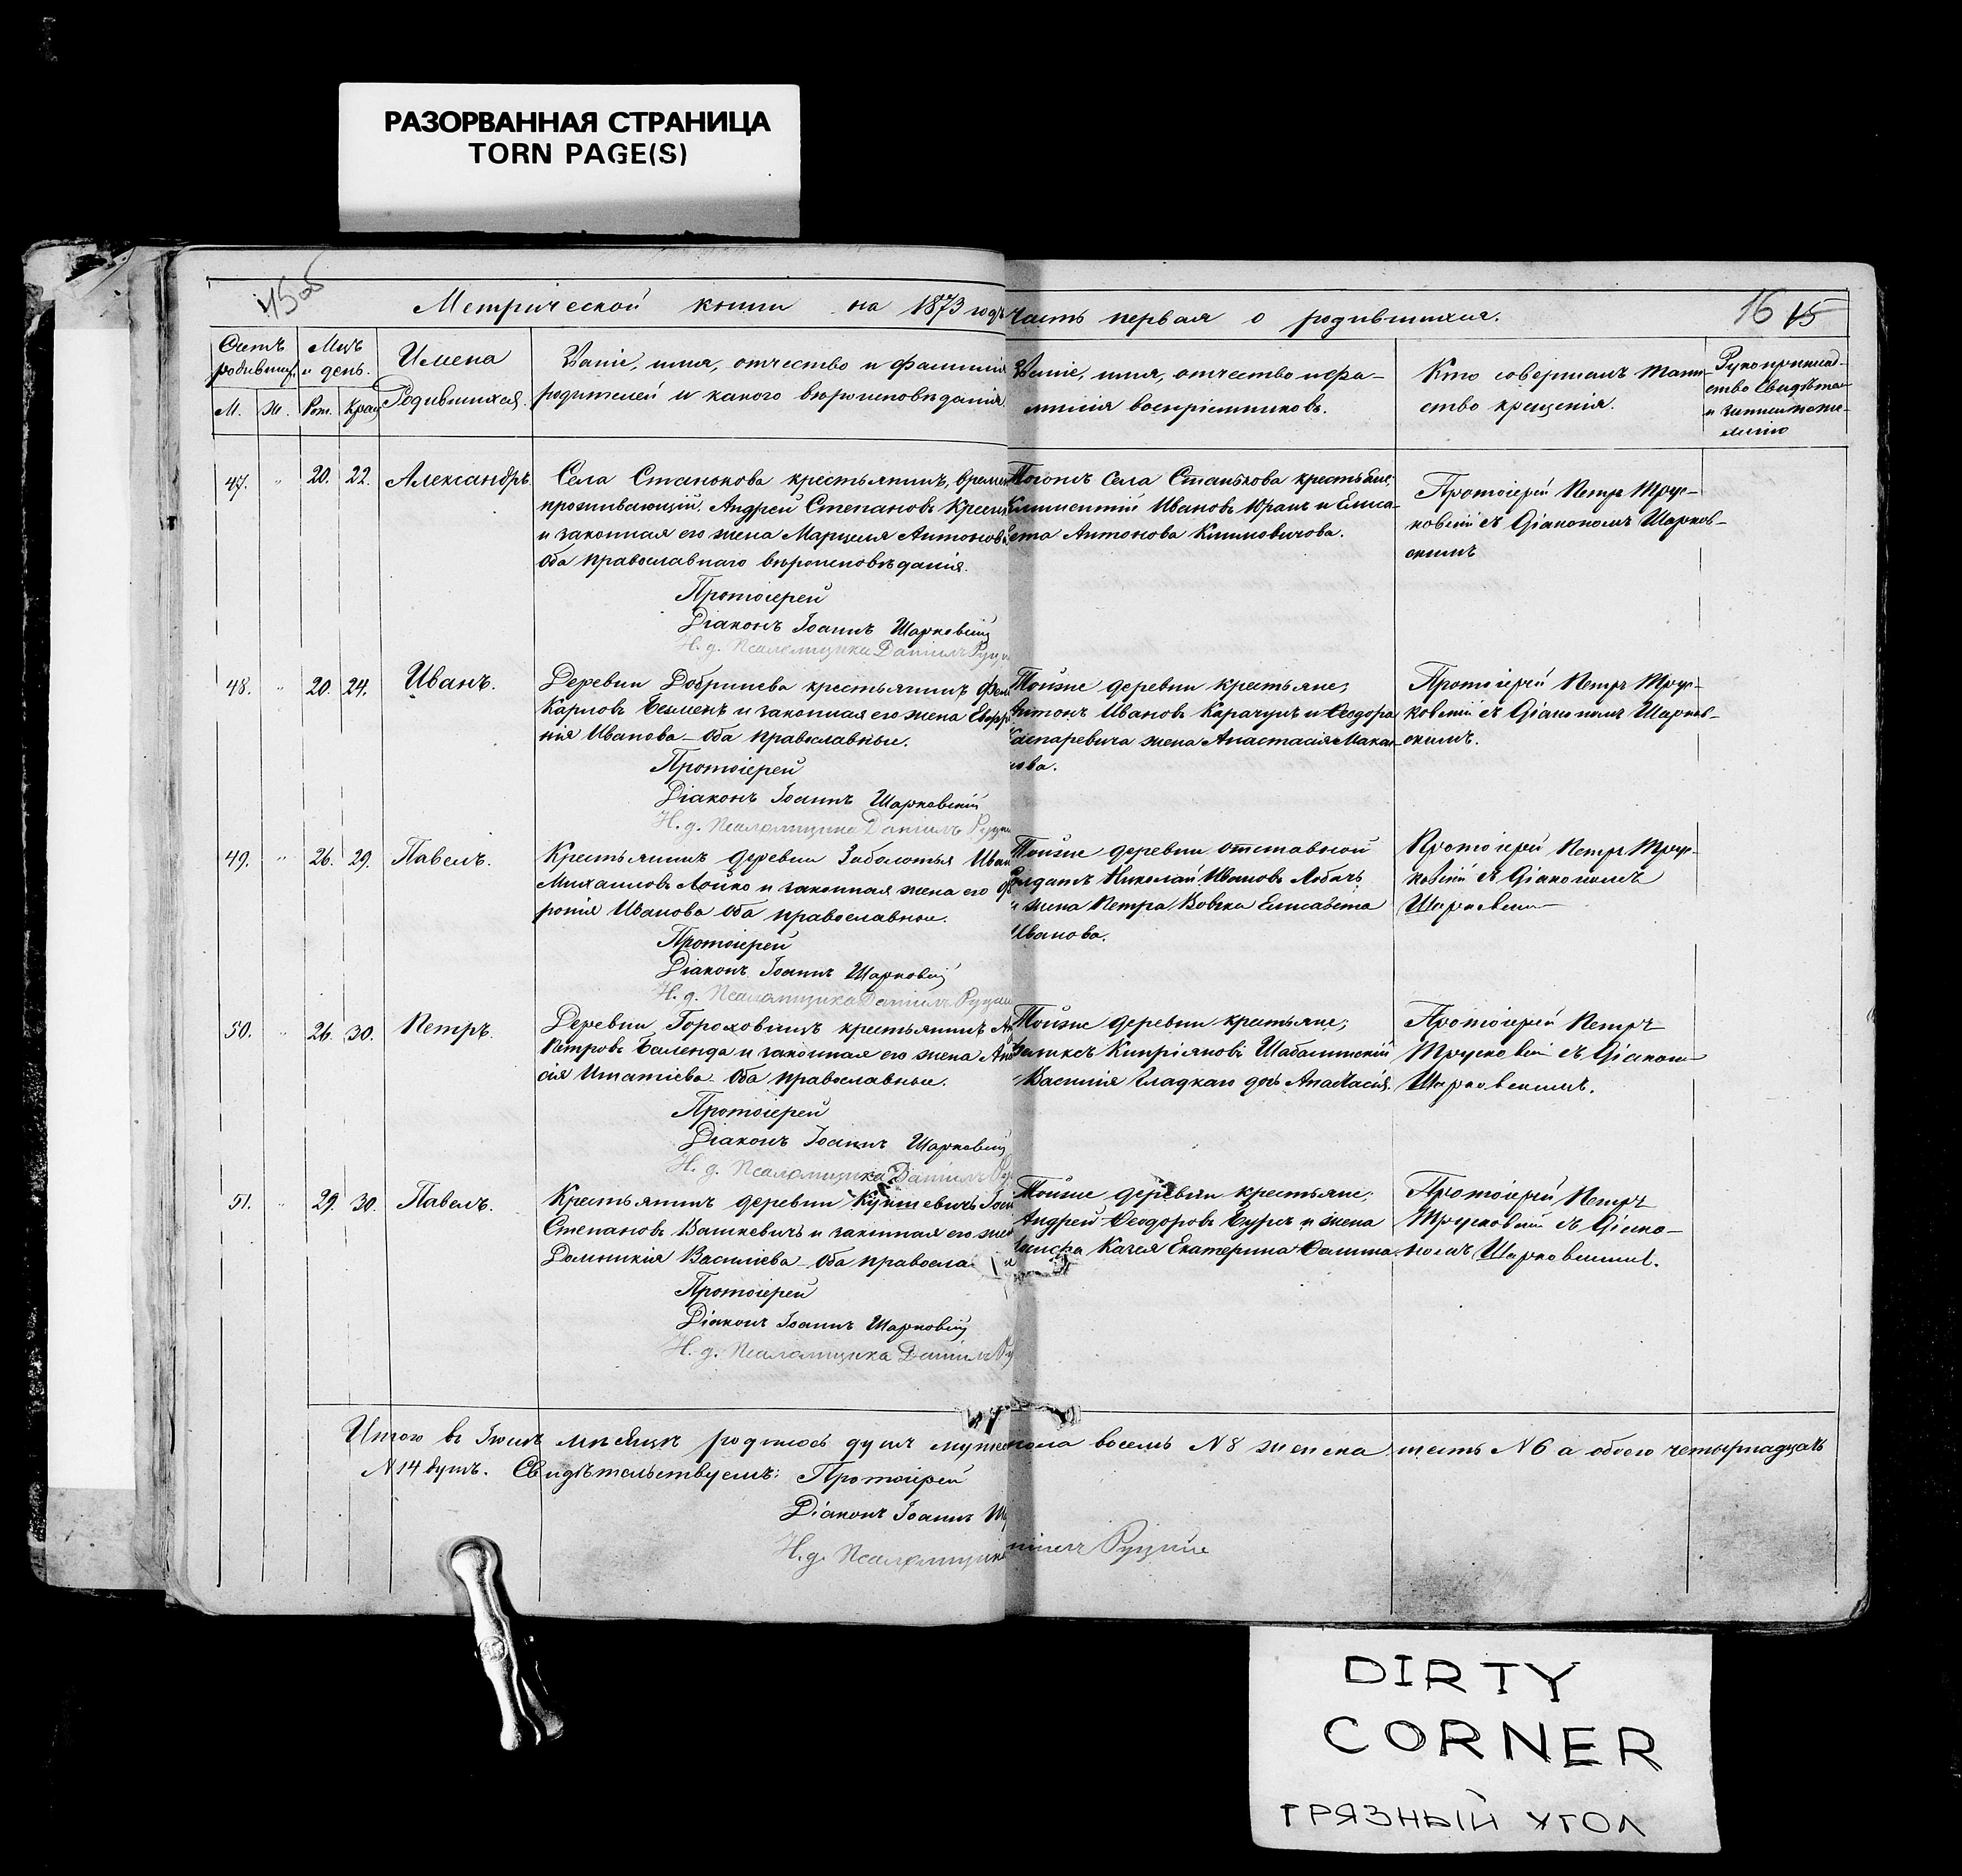 РАЗОРВАННАЯ СТРАНИЦА
TORN PAGE(S)
Метрической книги на 1873 годъ
часть первая о родившихся.
16 15
Счетъ родившихся.
М. Ж.
Мцъ и день.
Рож. Крещ.
Имена
Родившихся.
Званіе, имя, отчество и фамилія
родителей и какого вѣроисповѣданія.
Званіе, имя, отчество и фа-
милія воспріемниковъ.
Кто совершалъ таин-
ство крещенія.
Рукоприклад-
ство свидѣте-
47. " 20. 22. Александръ.
Села Станькова крестьянинъ, времен
проживающій, Андрей Степановъ
и законная его жена Марцеля Антонов
оба православнаго вѣроисповѣданія.
Протоіерей
Діаконъ Іоаннъ Шарковскій
И. д. Псаломщика Даніилъ
Села Станькова крестьяне;
Климентій Ивановъ Юранъ и Елиса-
вета Антонова Климовичова.
Протоіерей Петръ Трус-
ковскій съ Діакономъ Шарков-
скимъ
48. " 20. 24. Иванъ.
Деревни Добринева крестьянинъ
Карловъ и законная его жена Евфро
нія Иванова - оба православные.
Протоіерей
Діаконъ Іоаннъ Шарковскій
И. д. Псаломщика Даніилъ
Тойже деревни крестьяне;
Антонъ Ивановъ Карачунъ и Ѳеодора
Каспаревича жена Анастасія Макаи-
нова.
Протоіерей Петръ Трус-
ковскій съ Діакономъ Шарков-
скимъ.
49. " 26. 29. Павелъ.
Крестьянинъ деревни Заболотья Иван
Михаиловъ Лойко и законная жена его
ронія Иванова оба православные.
Протоіерей
Діаконъ Іоаннъ Шарковскій
И. д. Псаломщика Даніилъ
Тойже деревни отставной
Солдатъ Николай Ивановъ Лобачъ
и жена Петра Вовка Елисавета
Иванова.
Протоіерей Петръ Трус-
ковскій съ Діакономъ
Шарковским
50. " 26. 30. Петръ.
Деревни Гороховищъ крестьянинъ
Петровъ Баленда и законная его жена
сія Игнатіева - оба православные.
Протоіерей
Діаконъ Іоаннъ Шарковскій
И. д. Псаломщика Даніилъ
Тойже деревни крестьяне;
Кипріяновъ Шабалинскій
Василія Гладкаго дочь Анастасія.
Протоіерей Петръ
Трусковскій съ Діакон
Шарковскимъ.
51. " 29. 30. Павелъ.
Крестьянинъ деревни
Степановъ Вашкевичъ и законная его жен
Домникія Василіева - оба правосла
Протоіерей
Діаконъ Іоаннъ Шарковскій
И. д. Псаломщика Даніилъ
Тойже деревни крестьяне;
Андрей Ѳеодоровъ Буръ и жена
Качея Екатерина Фомина
Протоіерей Петръ
Трусковскій съ Діако-
номъ Шарковскимъ.
Итого въ Іюнѣ мѣсяцѣ родилось душъ мужес пола восемь N 8 женска шесть N 6 а обоего четырнадцать
N 14 душъ. Свидѣтельствуемъ: Протоіерей
Діаконъ Іоаннъ
И. д. Псаломщика
DIRTY
CORNER
ГРЯЗНЫЙ УГОЛ